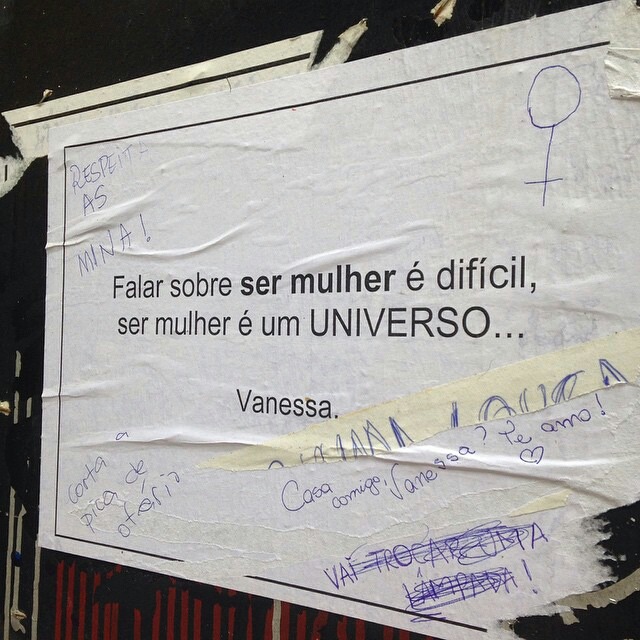 RESPEITA
AS
MINA!
Falar sobre ser mulher é difícil,
ser mulher é um UNIVERSO...
Vanessa.
LOUCA
corta a
pica de
otário
Casa comigo, Vanessa? Te amo!
VAI TROCAR UMA
LÂMPADA!